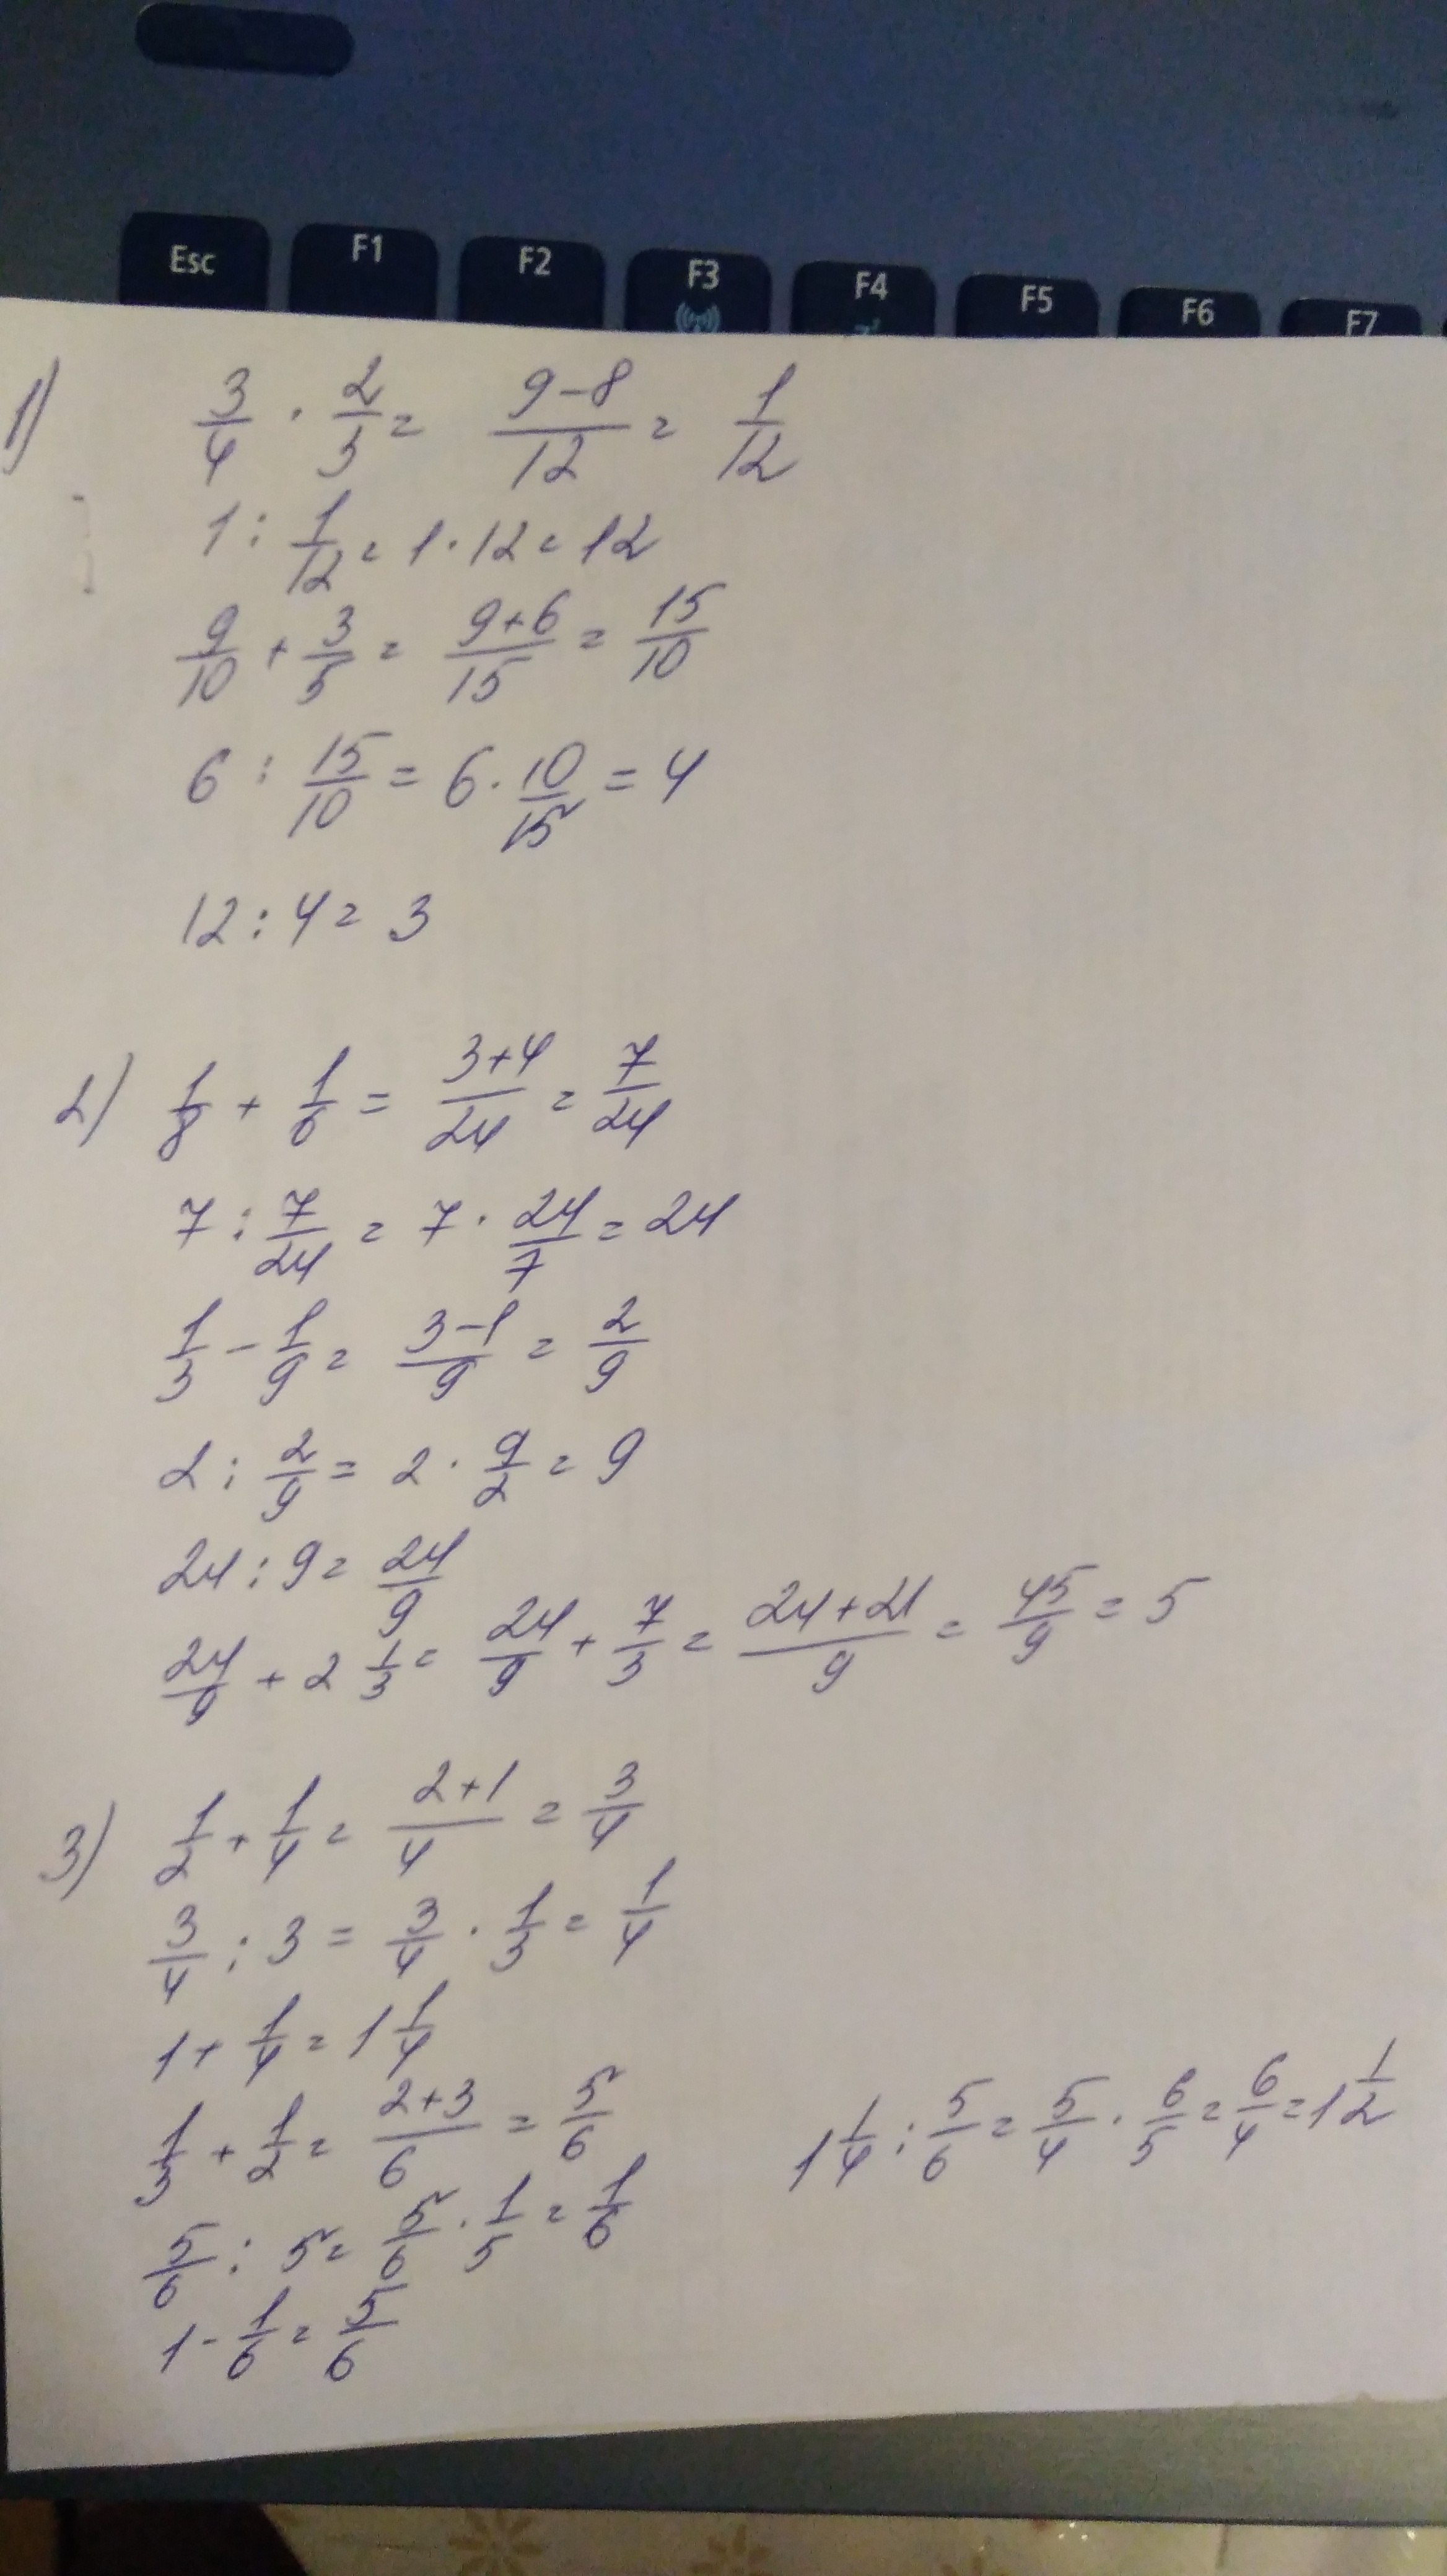 Esc F1 F2 F3 F4 F5 F6 F7
1) 3/4 · 2/3 = (9-8)/12 = 1/12
1 : 1/12 = 1 · 12 = 12
9/10 + 3/5 = (9+6)/15 = 15/10
6 : 15/10 = 6 · 10/15 = 4
12 : 4 = 3
2) 1/8 + 1/6 = (3+4)/24 = 7/24
7 : 7/24 = 7 · 24/7 = 24
1/3 - 1/9 = (3-1)/9 = 2/9
2 : 2/9 = 2 · 9/2 = 9
24 : 9 = 24/9
24/9 + 2 1/3 = 24/9 + 7/3 = (24+21)/9 = 45/9 = 5
3) 1/2 + 1/4 = (2+1)/4 = 3/4
3/4 : 3 = 3/4 · 1/3 = 1/4
1 + 1/4 = 1 1/4
1/3 + 1/2 = (2+3)/6 = 5/6
5/6 : 5 = 5/6 · 1/5 = 1/6
1 - 1/6 = 5/6
1 1/4 : 5/6 = 5/4 · 6/5 = 6/4 = 1 1/2